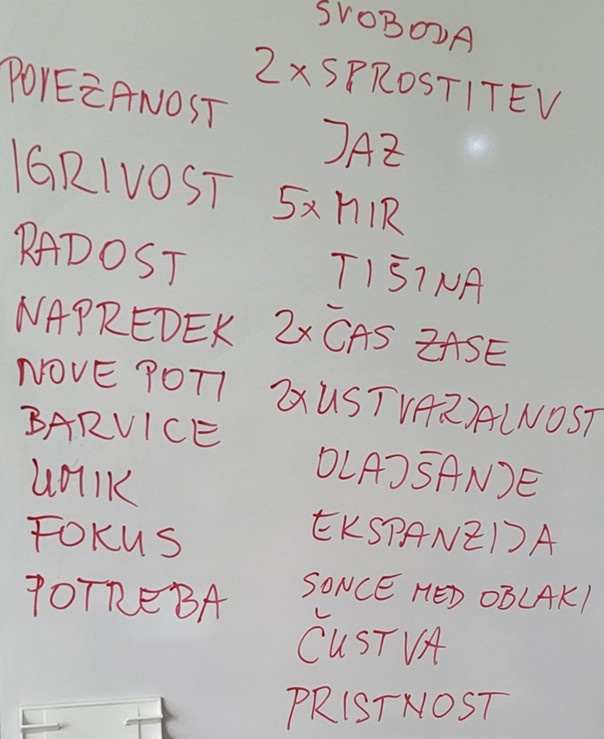 POVEZANOST
IGRIVOST
RADOST
NAPREDEK
NOVE POTI
BARVICE
UMIK
FOKUS
POTREBA
SVOBODA
2x SPROSTITEV
JAZ
5x MIR
TIŠINA
2x ČAS ZASE
2x USTVARJALNOST
OLAJŠANJE
EKSPANZIJA
SONCE MED OBLAKI
ČUSTVA
PRISTNOST